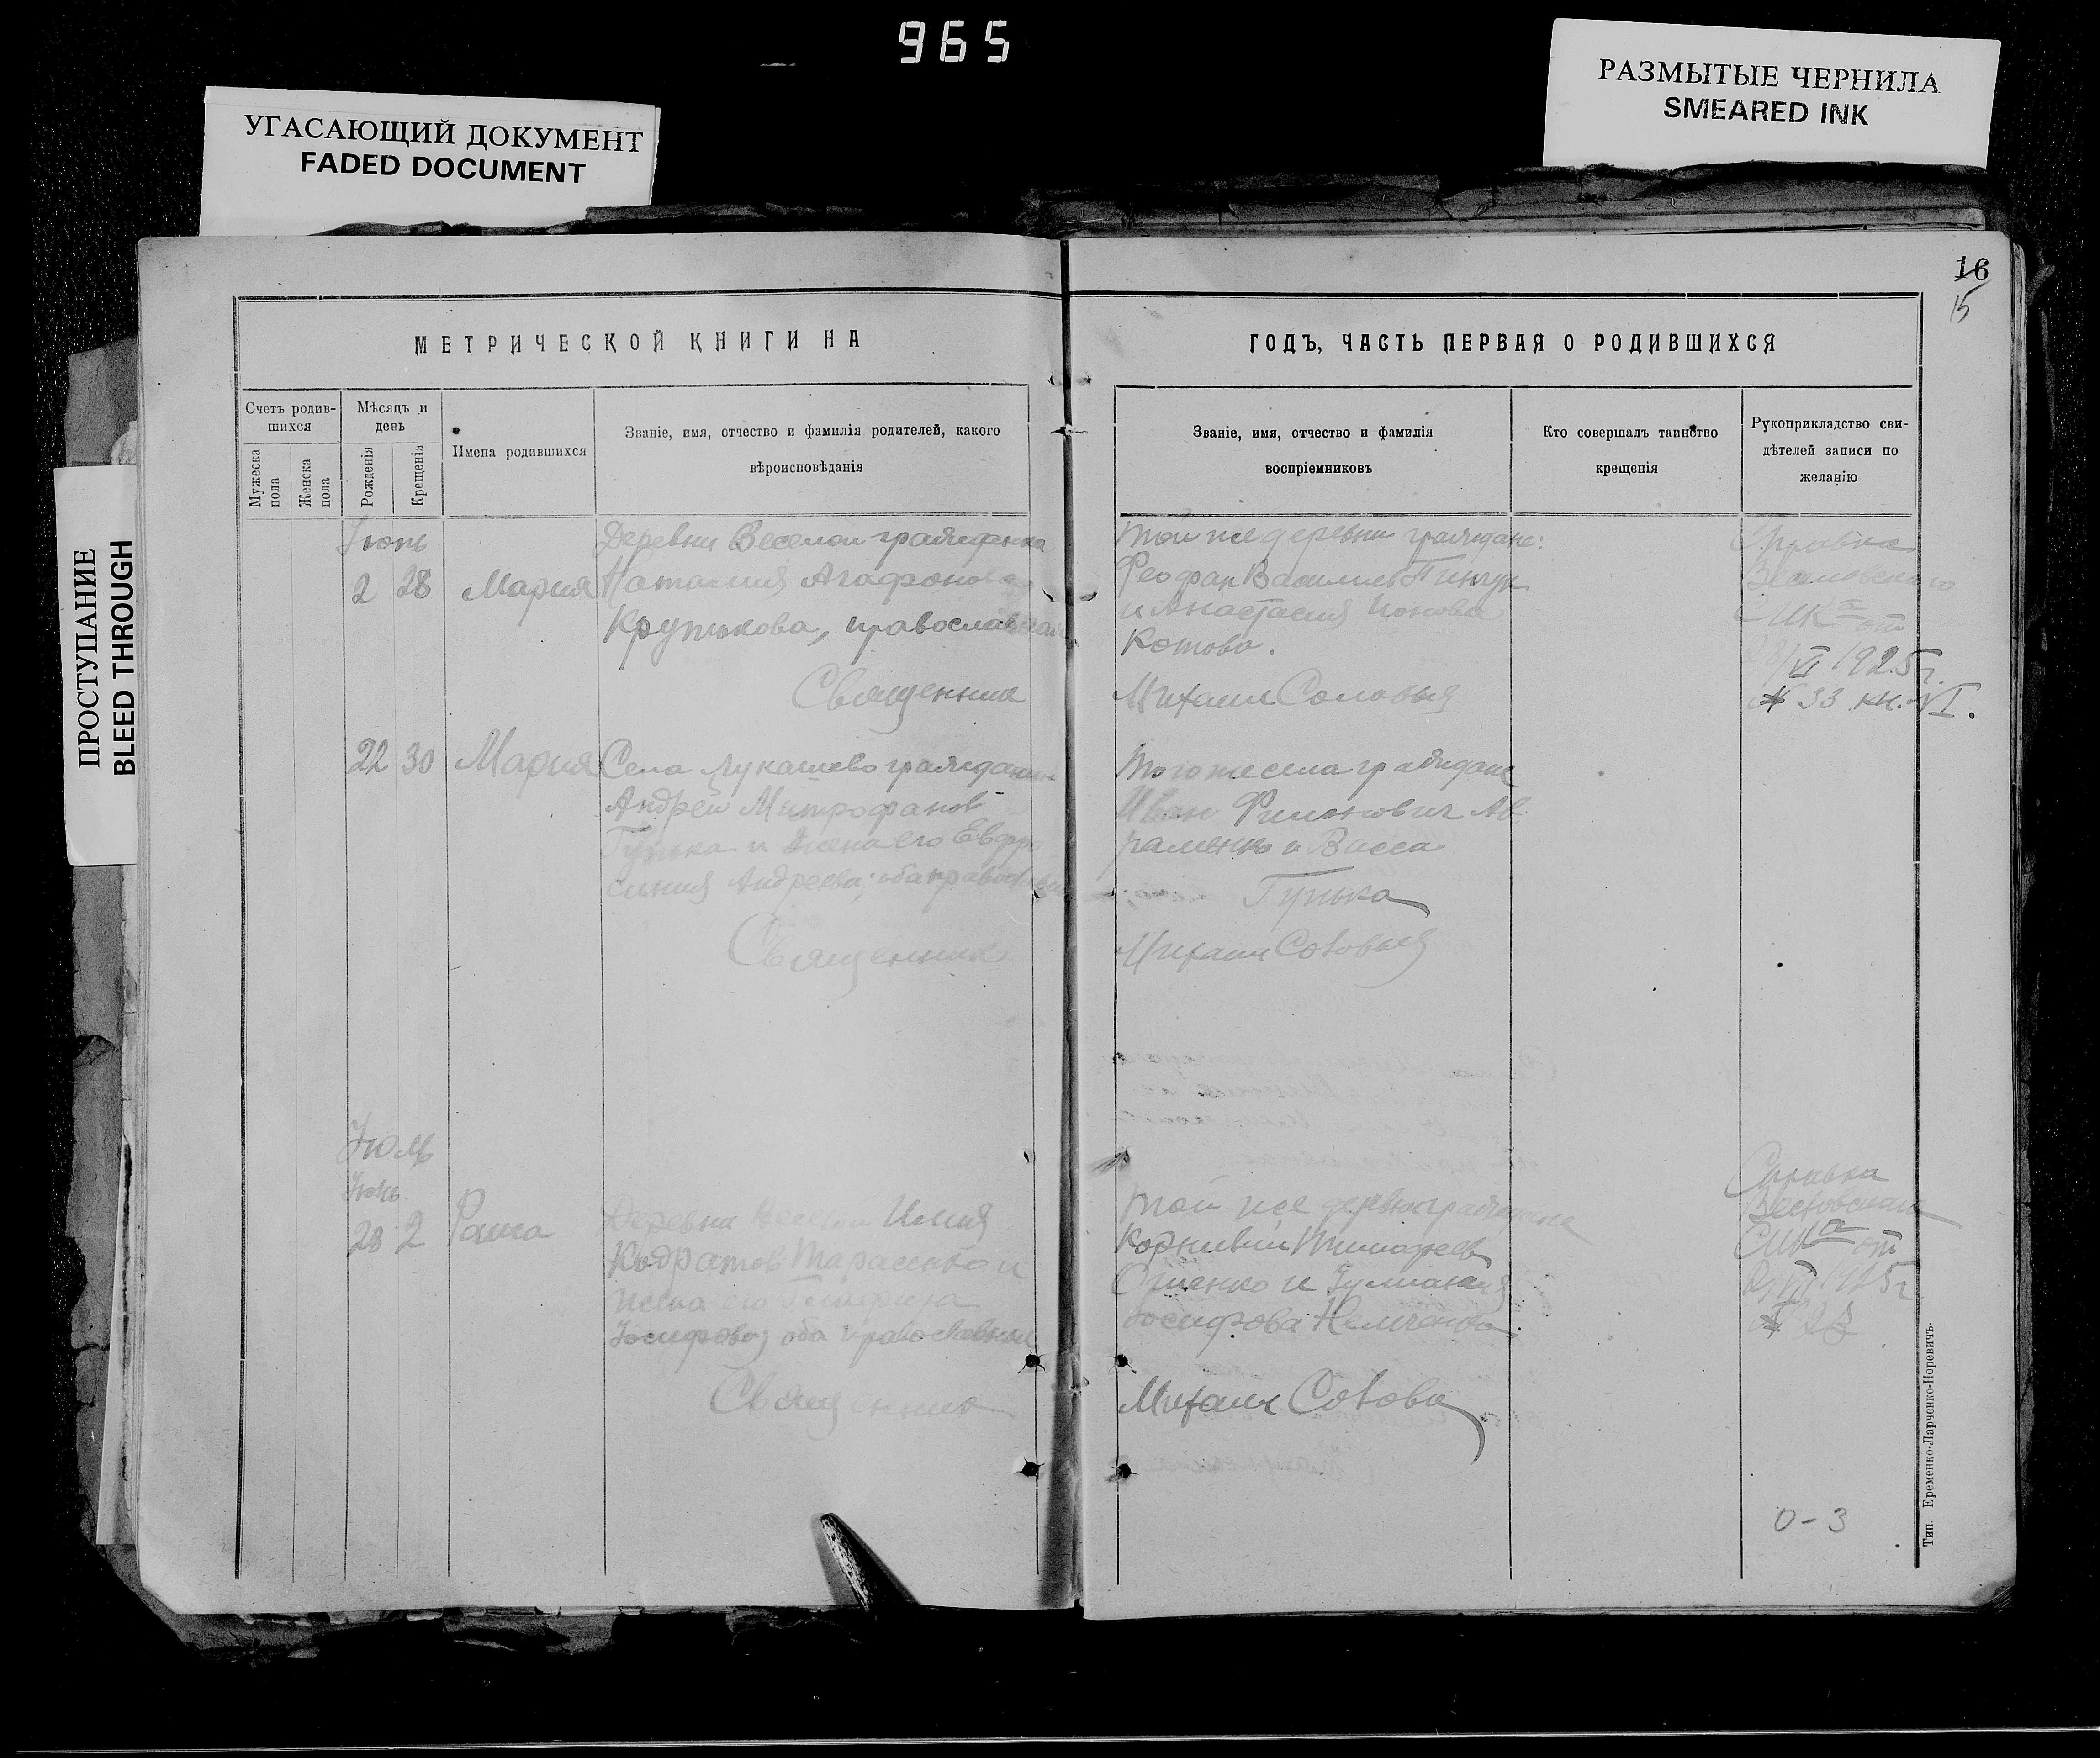 965
УГАСАЮЩИЙ ДОКУМЕНТ
FADED DOCUMENT
РАЗМЫТЫЕ ЧЕРНИЛА
SMEARED INK
ПРОСТУПАНИЕ
BLEED THROUGH
16
15
МЕТРИЧЕСКОЙ КНИГИ НА
Счетъ родив-
шихся
Мѣсяцъ и
день
Мужеска
пола
Женска
пола
Рожденія
Крещенія
Имена родившихся
Званіе, имя, отчество и фамилія родителей, какого
вѣроисповѣданія
Июнь
2 28 Мария
Деревни Веселой гражданка
Наталия Агафонова
Крупькова, православная
Священник
22 30 Мария
Села Лукашево гражданин
Андрей Митрофанов
Гунька и жена его Евфро
синия Андреева; оба православные
Священник
Июль
Июнь
28 2 Раиса
Деревни Веселой Илия
Кодратов Тарасенко и
жена его
Иосифова, оба православные
Священник
ГОДЪ, ЧАСТЬ ПЕРВАЯ О РОДИВШИХСЯ
Званіе, имя, отчество и фамилія
воспріемниковъ
Кто совершалъ таинство
крещенія
Рукоприкладство сви-
дѣтелей записи по
желанію
Той же деревни граждане:
Феофан Васильев Пинчук
и Анастасия Ионова
Котова.
Михаил Соловьев
Справка
СИКа от
28/VI 1925 г.
№ 33 кн. VI.
Того же села граждане
Иван Филонович Ав
раменко и Васса
Гунька
Михаил Соловьев
Той же деревни граждане
Корнилий Тимофеев
и Иулиания
Иосифова Немченко
Михаил Соловьев
Справка
СИКа от
0-3
Тип. Еременко-Ларченко-Норевичъ.